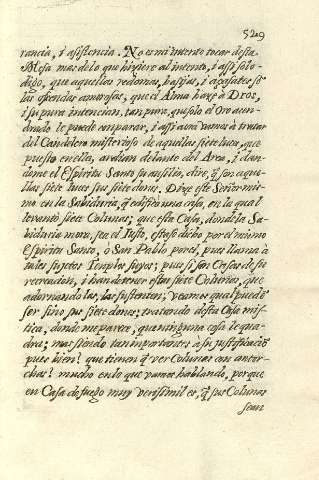 529
rancia, i asistencia. No es mi intento tocar desta
Mesa mas de lo que hiziere al intento, i assi solo
digo, que aquellas redomas, basijas, i açafates sõ
las ofrendas amorosas, que el Alma haze à Dios,
i su pura intencion, tan pura, que solo el Oro acen-
drado le puede comparar, i assi aora vamos à tratar
del Candelero misterioso de aquellas siete luces, que
puesto en ellas, ardian delante del Arca, i dan-
dome el Espiritu Santo su ausilio, dire, q̃ son aque-
llas siete luces sus siete dones. Dixe este Señor mis-
mo en la Sabiduria, q̃ edificò una casa, en la qual
levantò siete Colunas; que esta Casa, donde la Sa-
biduria mora, sea el Justo, estase dicho por el mismo
Espiritu Santo, ò San Pablo por el, pues llama à
tales sujetos Templos suyos; pues si son Casas de su
recreacion, i han de tener estas siete Colunas, que
adornandolas, las sustenten; veamos qual puedẽ
ser sino sus siete dones; tratando desta Casa mis-
tica, donde me parece, que ninguna cosa le qua-
dra; mas siendo tan importantes à su justificaciõ
pues bien? que tienen q̃ ver Colunas con antor-
chas? mucho en lo que vamos hablando, porque
en Casa de fuego muy verisimil es, q̃ sus Colunas
sean